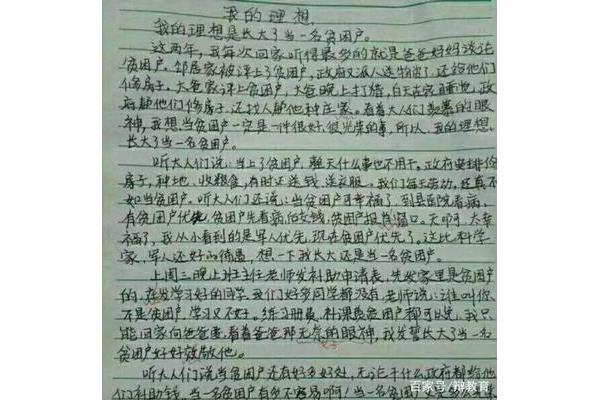 我的理想.
我的理想是长大了当一名贫困户。
这两年,我每次回家听得最多的就是爸爸妈妈谈论
贫困户,邻居家被评上了贫困户,政府又派人送物资了,还给他们
修房子,大爸家评上贫困户,大爸晚上打牌,白天在家睡觉,政
府帮他们修房子,还找人帮他种庄家。看着大人们羡慕的眼
神,我想当贫困户一定是一件很好,很光荣的事,所以,我的理想,
长大了当一名贫困户。
听大人们说:当上了贫困户,整天什么事也不用干。政府安排修
房子,种地、收粮食,有时还送钱、送衣服。我们每天劳动,还真不
如当贫困户,听大人们还说:当贫困户可幸福了,到县医院看病,
有贫困户优先,贫困户先看病后交钱,贫困户报销窗口。天呵,太幸
福了,我从小看到的是军人优先,现在贫困户优先了。这比科学
家、军人还好的待遇,想一下我长大还是当一名贫困户。
上周三晚上班主任老师发补助申请表,先发家里是贫困户
的,在发学习好的同学,我们好多同学都没有,老师说:谁叫你
不是贫困户,学习又不好。练习册费、补课费贫困户都可以免,我只
能回家向爸爸要,看着爸爸那无奈的眼神,我发誓长大了当一名
贫困户好好孝敬他。
听大人们说当贫困户还有好多好处,无论干什么政府都给他
们补助钱,当一名贫困户有多不容易啊!当一名贫困户
百家号/辩教育